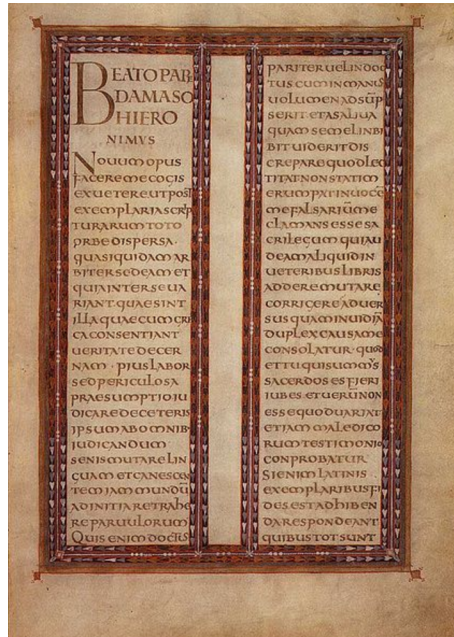 BEATO PAP
DAMASO
HIERO
NIMUS
Nouum opus
facere me cogis
ex uetere ut post
exemplaria scrip
turarum toto
orbe dispersa
quasi quidam ar
biter sedeam et
quia inter se ua
riant quae sint
illa quae cum gre
ca consentiant
ueritate decer
nam · pius labor
sed periculosa
praesumptio iu
dicare de ceteris
ipsum ab omnib
iudicandum
senis mutare lin
guam et canescen
tem iam mundū
ad initia retrahe
re paruulorum
Quis enim doctus
pariter uel indoc
tus cum in manus
uolumen adsūp
serit et a saliua
quam semel inbi
bit uiderit dis
crepare quod lec
titat non statim
erumpat in uocē
me falsariū me
clamans esse sa
crilegum qui au
deam aliquid in
ueteribus libris
addere mutare
corrigere aduer
sus quam inuidiā
duplex causa me
consolatur quod
et tu qui summus
sacerdos es fieri
iubes et uerū non
esse quod uariat
etiam maledico
rum testimonio
conprobatur
Si enim latinis
exemplaribus fi
des est adhiben
da respondeant
quibus tot sunt